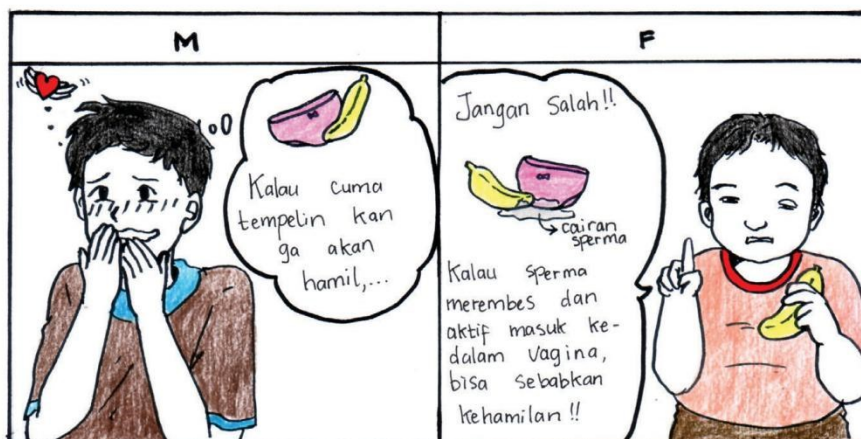 M
F
Kalau cuma
tempelin kan
ga akan
hamil,...
Jangan Salah!!
cairan
sperma
Kalau sperma
merembes dan
aktif masuk ke-
dalam vagina,
bisa sebabkan
kehamilan !!